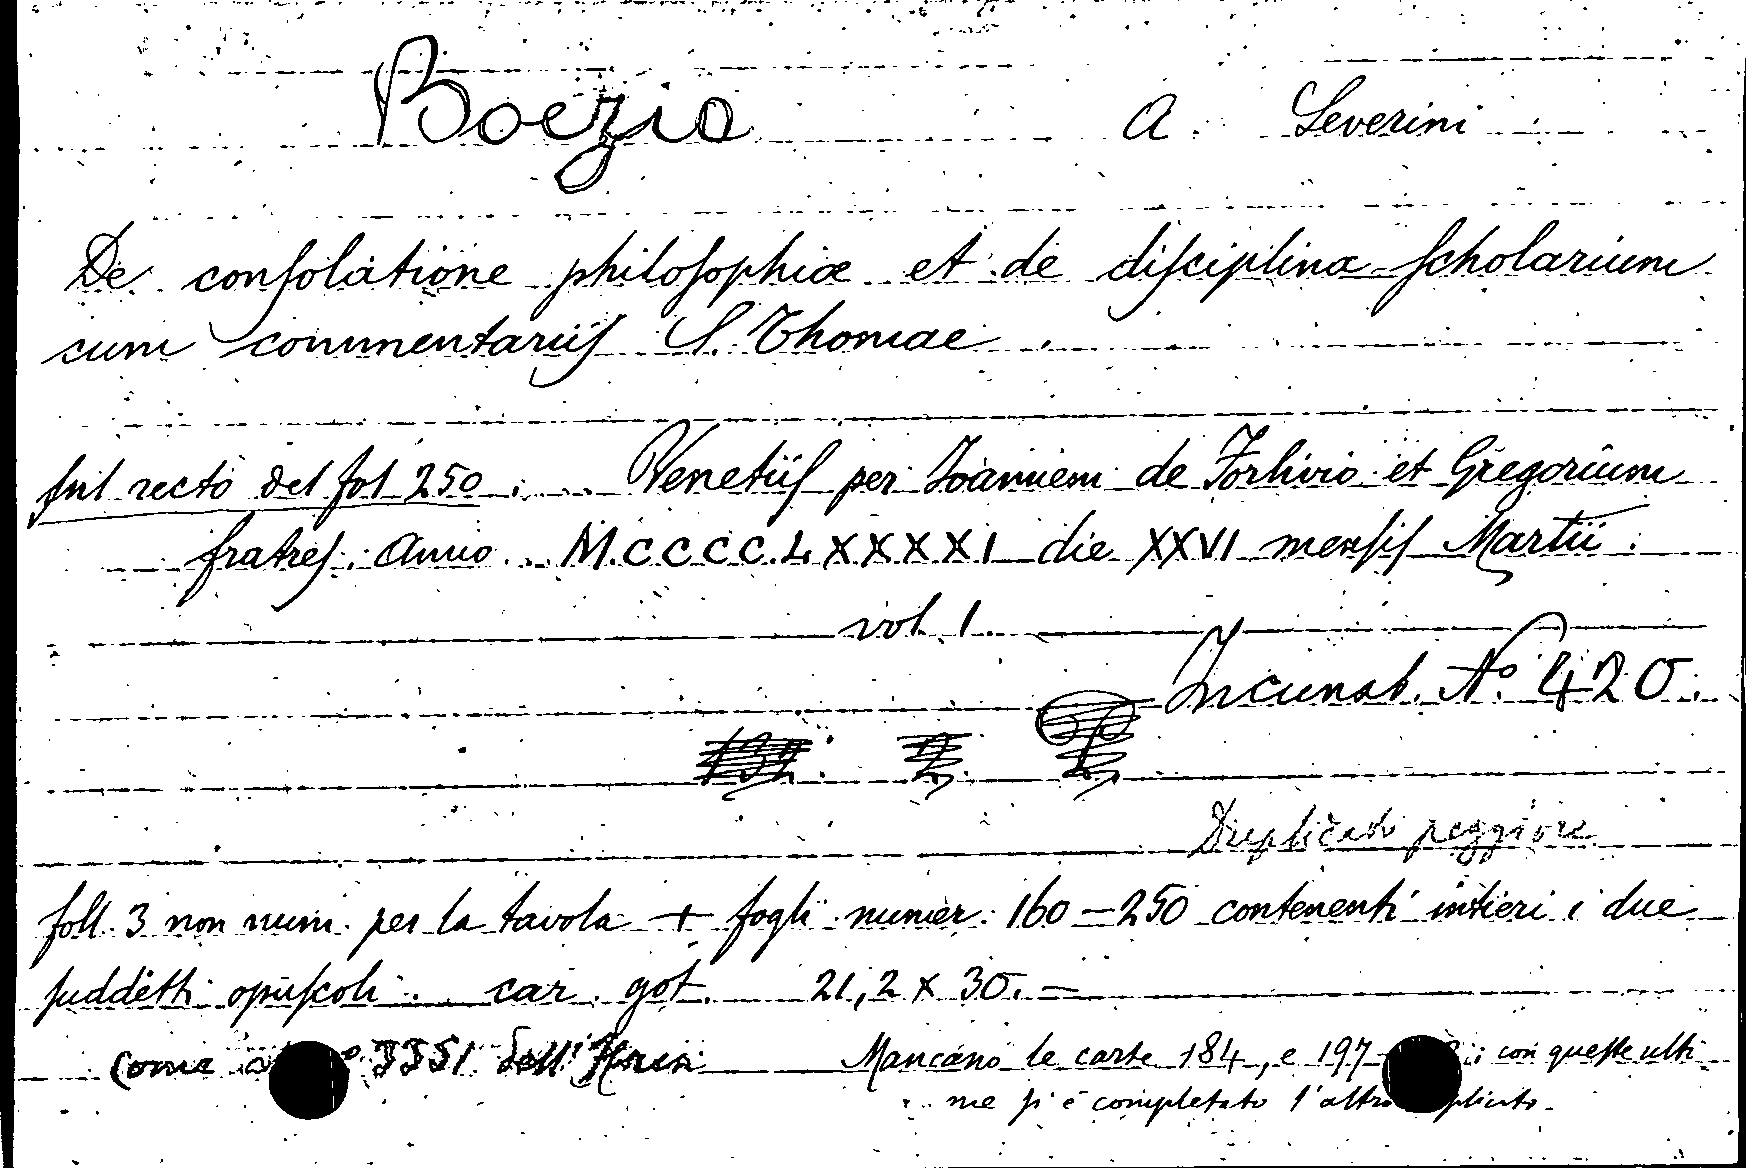 Boezio A. Severini
De conſolatione philoſophiæ et de diſciplina ſcholarium
cum commentariiſ S. Thomae
ſul recto del fol 250. Venetiiſ per Ioannem de Forlivio et Gregorium
fratreſ. Anno M.CCCC.LXXXXI die XXVI menſiſ Martii.
vol. 1.
Incunab. N.º 420.
Duplicati peggiore
foll. 3 non num. per la tavola + fogli numer. 160-250 contenenti intieri i due
ſuddetti opuſcoli. car. got. 21,2 x 30. —
Come 3351 dell'Hain Mancano le carte 184, e 197- ; con queſte ulti-
me ſi è completato l'altro